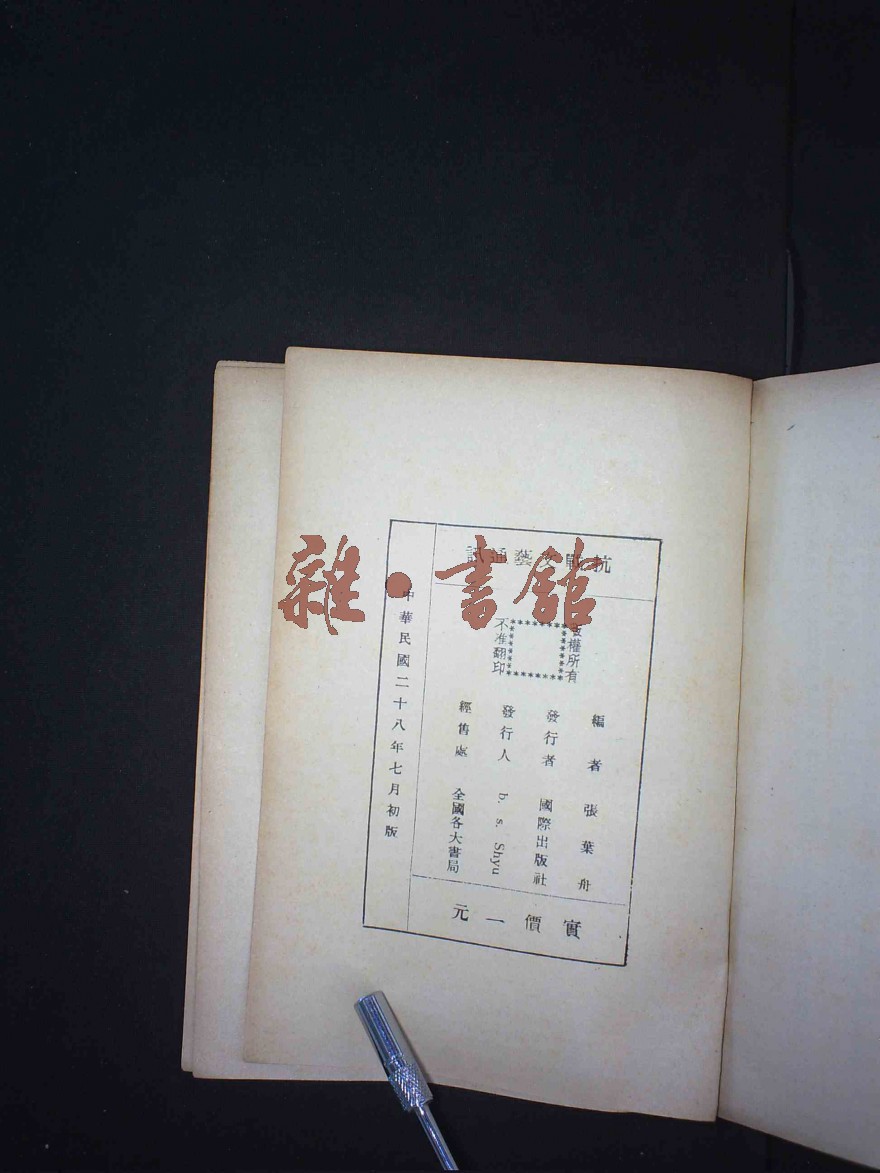 抗戰文藝通訊
版權所有
不准翻印
編者 張葉舟
發行者 國際出版社
發行人 b. s. Shyu
經售處 全國各大書局
實價一元
中華民國二十八年七月初版
雜·書館